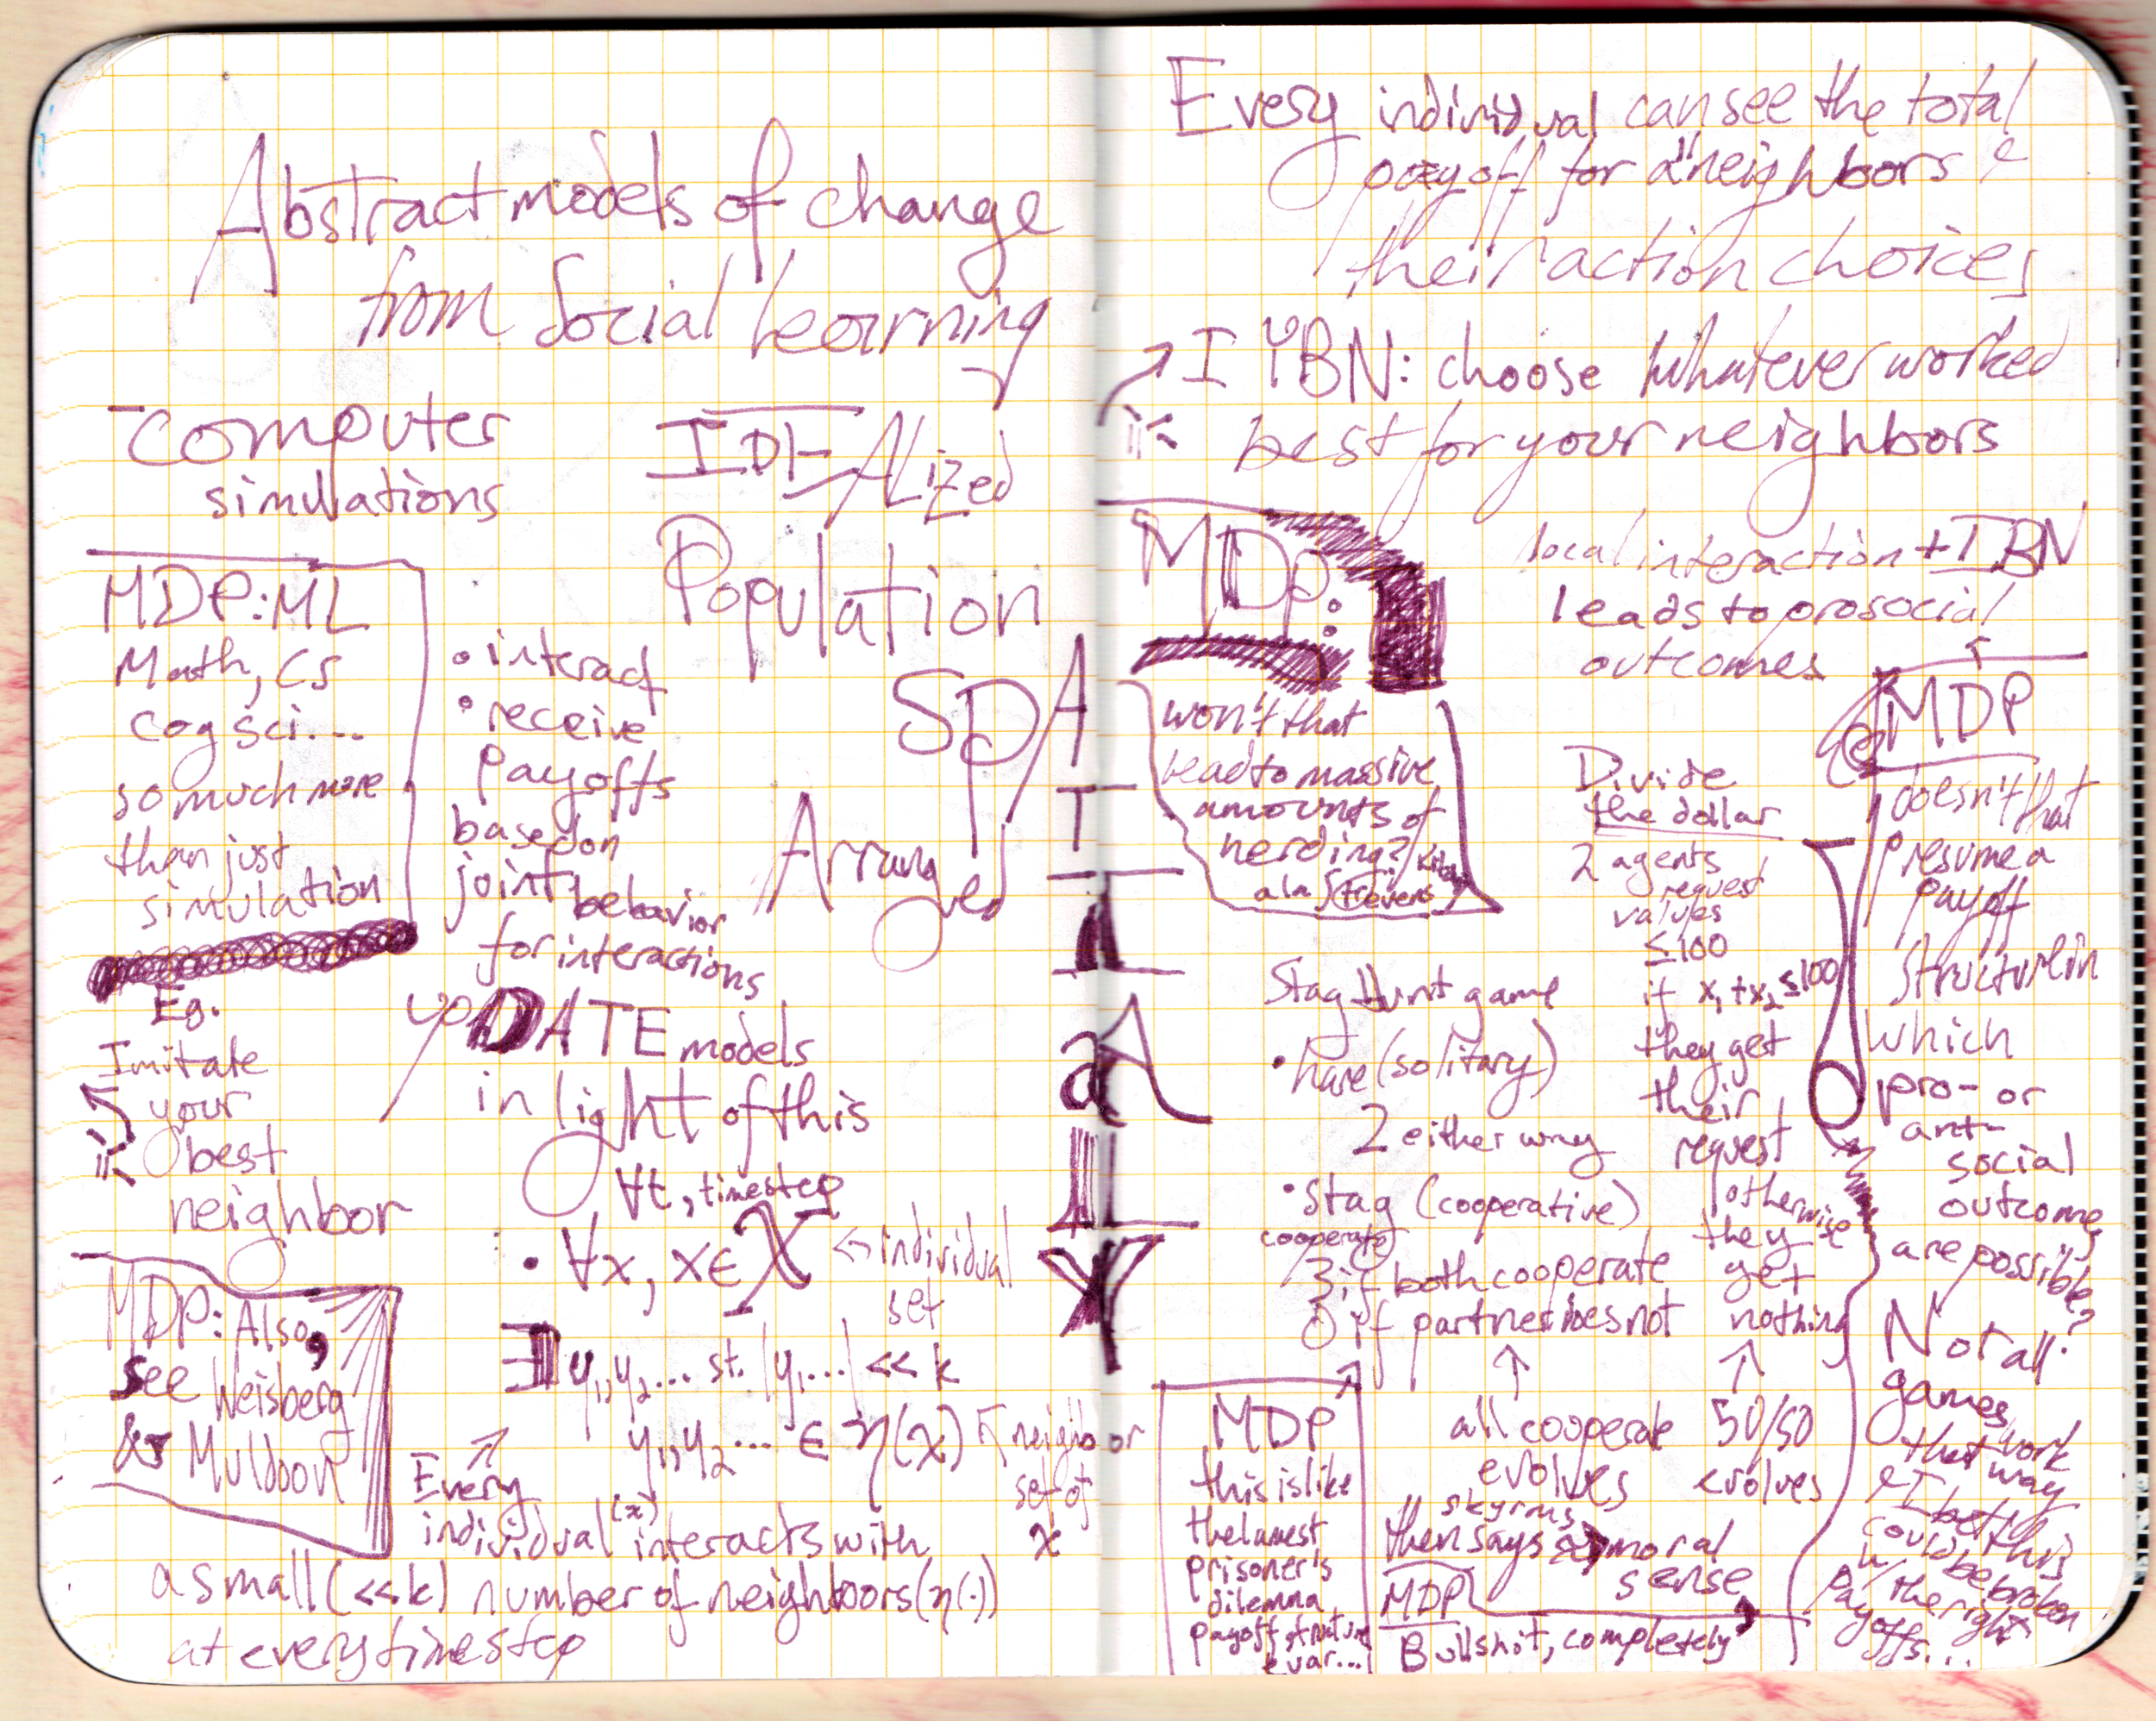 Abstract models of change
from Social learning
-computer
simulations
IDEALized
Population
SPATIALLY
Arranged
MDP: ML
Math, CS
cog sci...
so much more
than just
simulation
• interact
• receive
payoffs
based on
joint behavior
for interactions
Eg.
Imitate
your
best
neighbor
UPDATE models
in light of this
∀t, timestep
• ∀x, x∈X ← individual
set
∃ y₁, y₂... st. |y₁...| << k
y₁, y₂... ∈ η(x) ↖ neighbor
set of
x
MDP: Also,
see Weisberg
& Muldoon
Every
individual (x) interacts with
a small (<<k) number of neighbors (η(·))
at every timestep
Every individual can see the total
payoff for all neighbors &
their action choices
IYBN: choose whatever worked
best for your neighbors
MDP:
won't that
lead to massive
amounts of
herding?
a la Strevens
local interaction + IBN
leads to prosocial
outcomes
MDP
doesn't that
presume a
payoff
structure in
which
pro- or
anti-
social
outcomes
are possible?
Not all
games
that work
that way
I bet this
could be broken
w/ the right
payoffs...
Divide
the dollar
2 agents
request
values
≤100
if x₁+x₂≤100
they get
their
request
otherwise
they
get
nothing
↑
50/50
evolves
Stag Hunt game
• hare (solitary)
2 either way
• Stag (cooperative)
cooperate
3 if both cooperate
0 if partner does not
↑
all cooperate
evolves
Skyrms
then says → moral
sense
MDP
Bullshit, completely
MDP
this is like
the lamest
prisoner's
dilemma
payoff structure
evar...